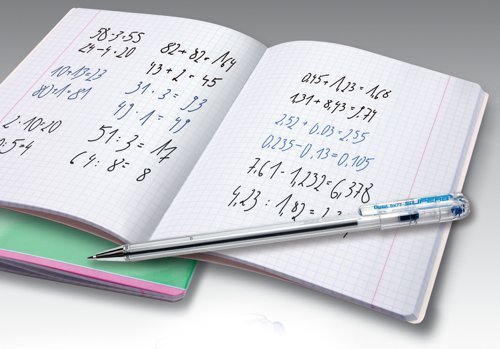 58·3=55
24-4·20
10+13=23
80+1=81
2·10·20
0:5=4
82+82=164
43+2=45
31·3=93
49·1=49
51:3=17
64:8=8
0,45+1,23=1,68
1,31+8,43=9,74
2,52+0,03=2,55
0,235-0,13=0,105
7,61-1,232=6,378
4,23:1,82=2,
Pentel BK77 SUPERB